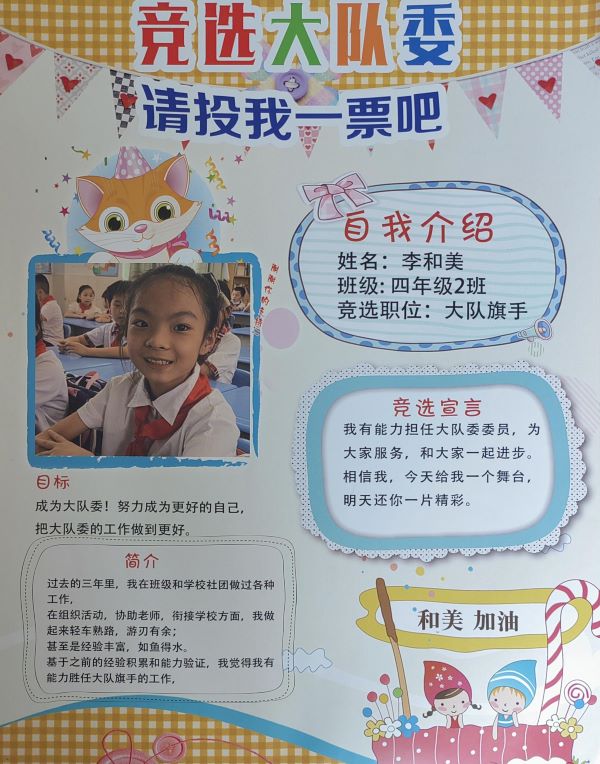 竞选大队委
请投我一票吧
自我介绍
姓名：李和美
班级：四年级2班
竞选职位：大队旗手
竞选宣言
我有能力担任大队委委员，为
大家服务，和大家一起进步。
相信我，今天给我一个舞台，
明天还你一片精彩。
目标
成为大队委！努力成为更好的自己，
把大队委的工作做到更好。
简介
过去的三年里，我在班级和学校社团做过各种
工作，
在组织活动，协助老师，衔接学校方面，我做
起来轻车熟路，游刃有余；
甚至是经验丰富，如鱼得水。
基于之前的经验积累和能力验证，我觉得我有
能力胜任大队旗手的工作，
和美 加油